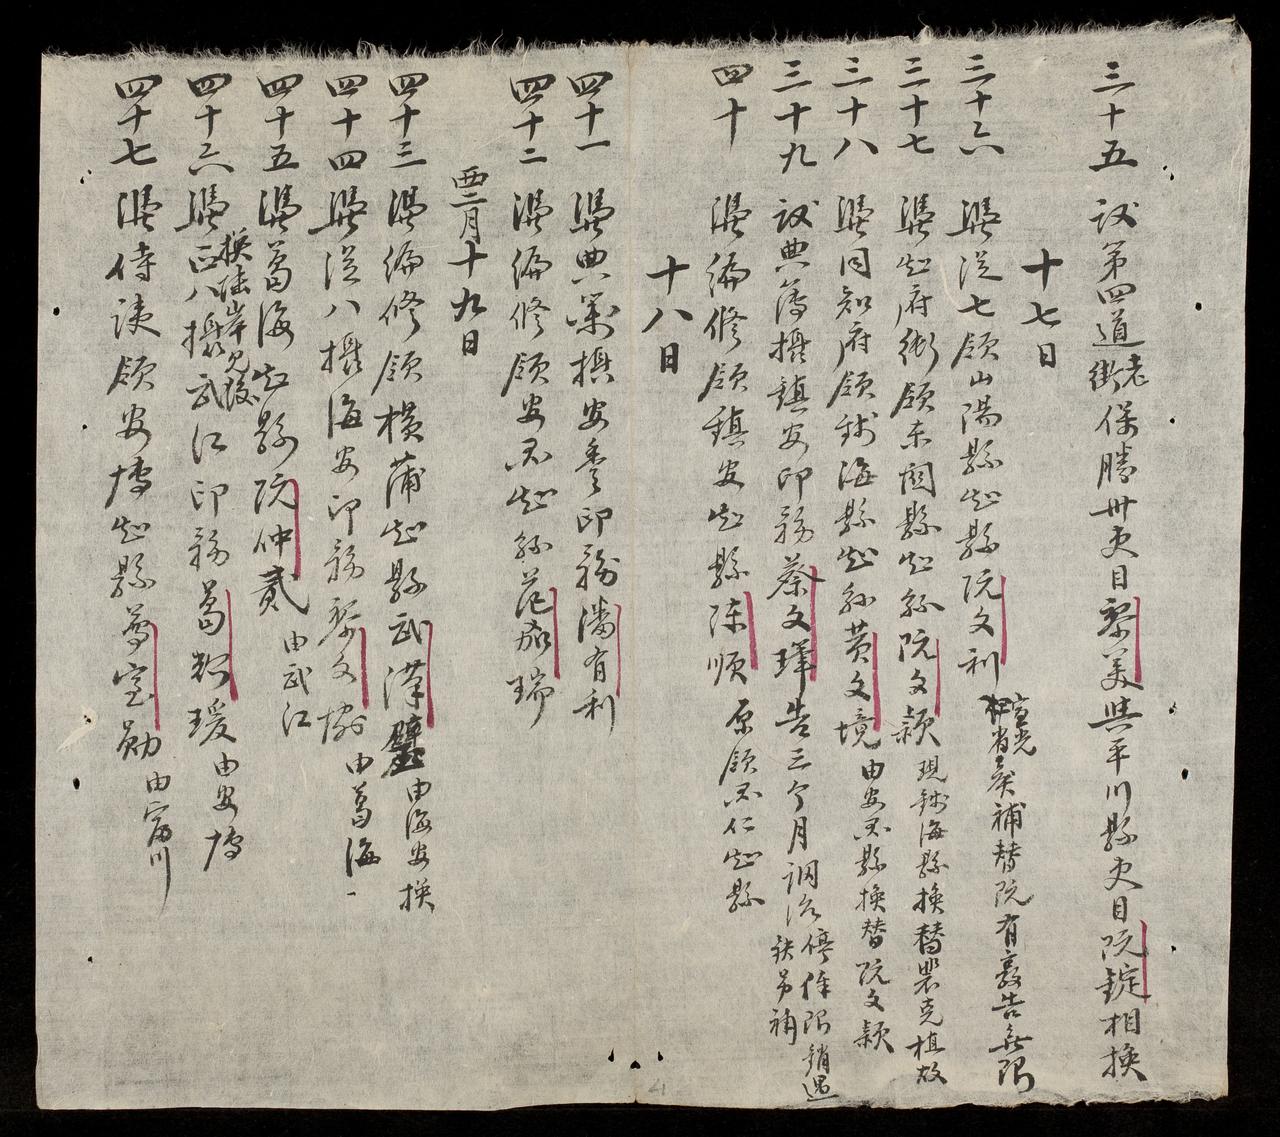 三十五 議第四道街老保勝州吏目黎美與平川縣吏目阮錠相換
十七日
三十六 憑從七領山陽縣知縣阮文利 宣光省奏補替阮有敦告無限
三十七 憑知府銜領東關縣知縣阮文穎 現錦海縣換替裴克植故
三十八 憑同知府領錦海縣知縣黃文境 由安不縣換替阮文穎
三十九 議典簿攝鎮安印務蔡文瑋告三个月調治停俸限銷遇缺另補
四十 憑編修領鎮安知縣陳順 原領不仁知縣
十八日
四十一 憑典籍攝安豊印務潘有利
四十二 憑編修領安不知縣范瑞
酉二月十九日
四十三 憑編修領橫蒲知縣武漢璧 由海安換
四十四 憑從八攝海安印務黎文 由萬海一
四十五 憑萬海知縣阮仲貳 由武江
換陸岸見後
四十六 憑正八攝武江印務葛瑗 由安博
四十七 憑侍讀領安博知縣尊室勛 由富川